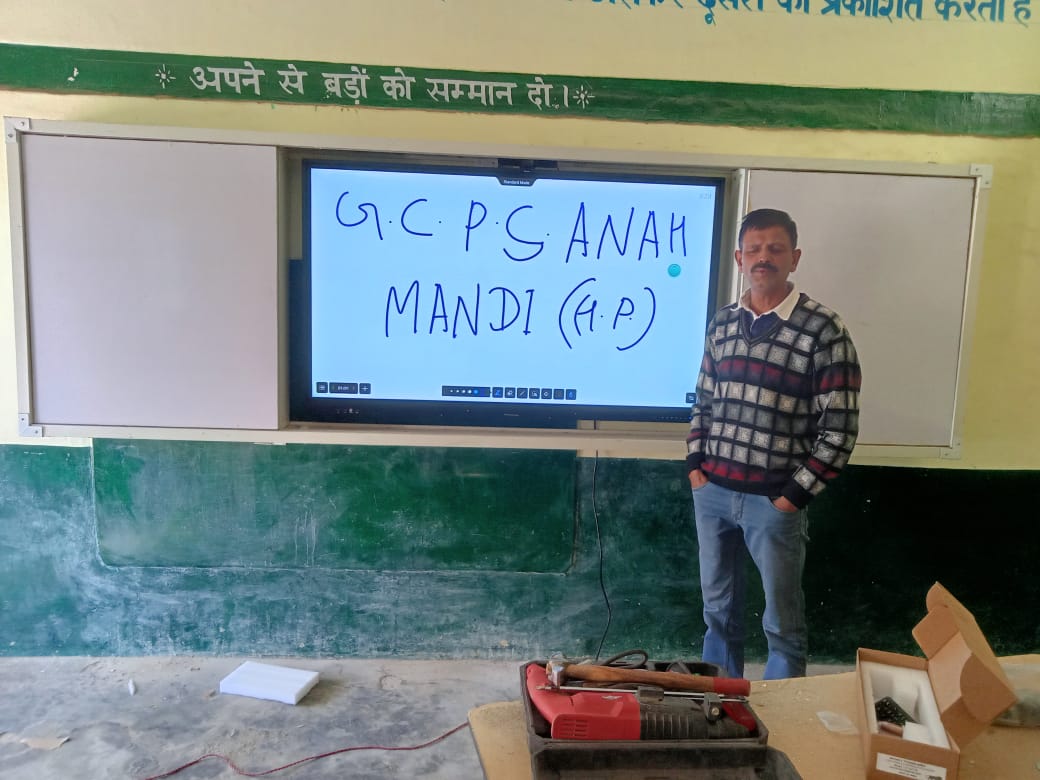 दूसरों को प्रकाशित करता है
अपने से बड़ों को सम्मान दो।
Standard Mode
G.C.P.S. ANAH
MANDI (H.P.)